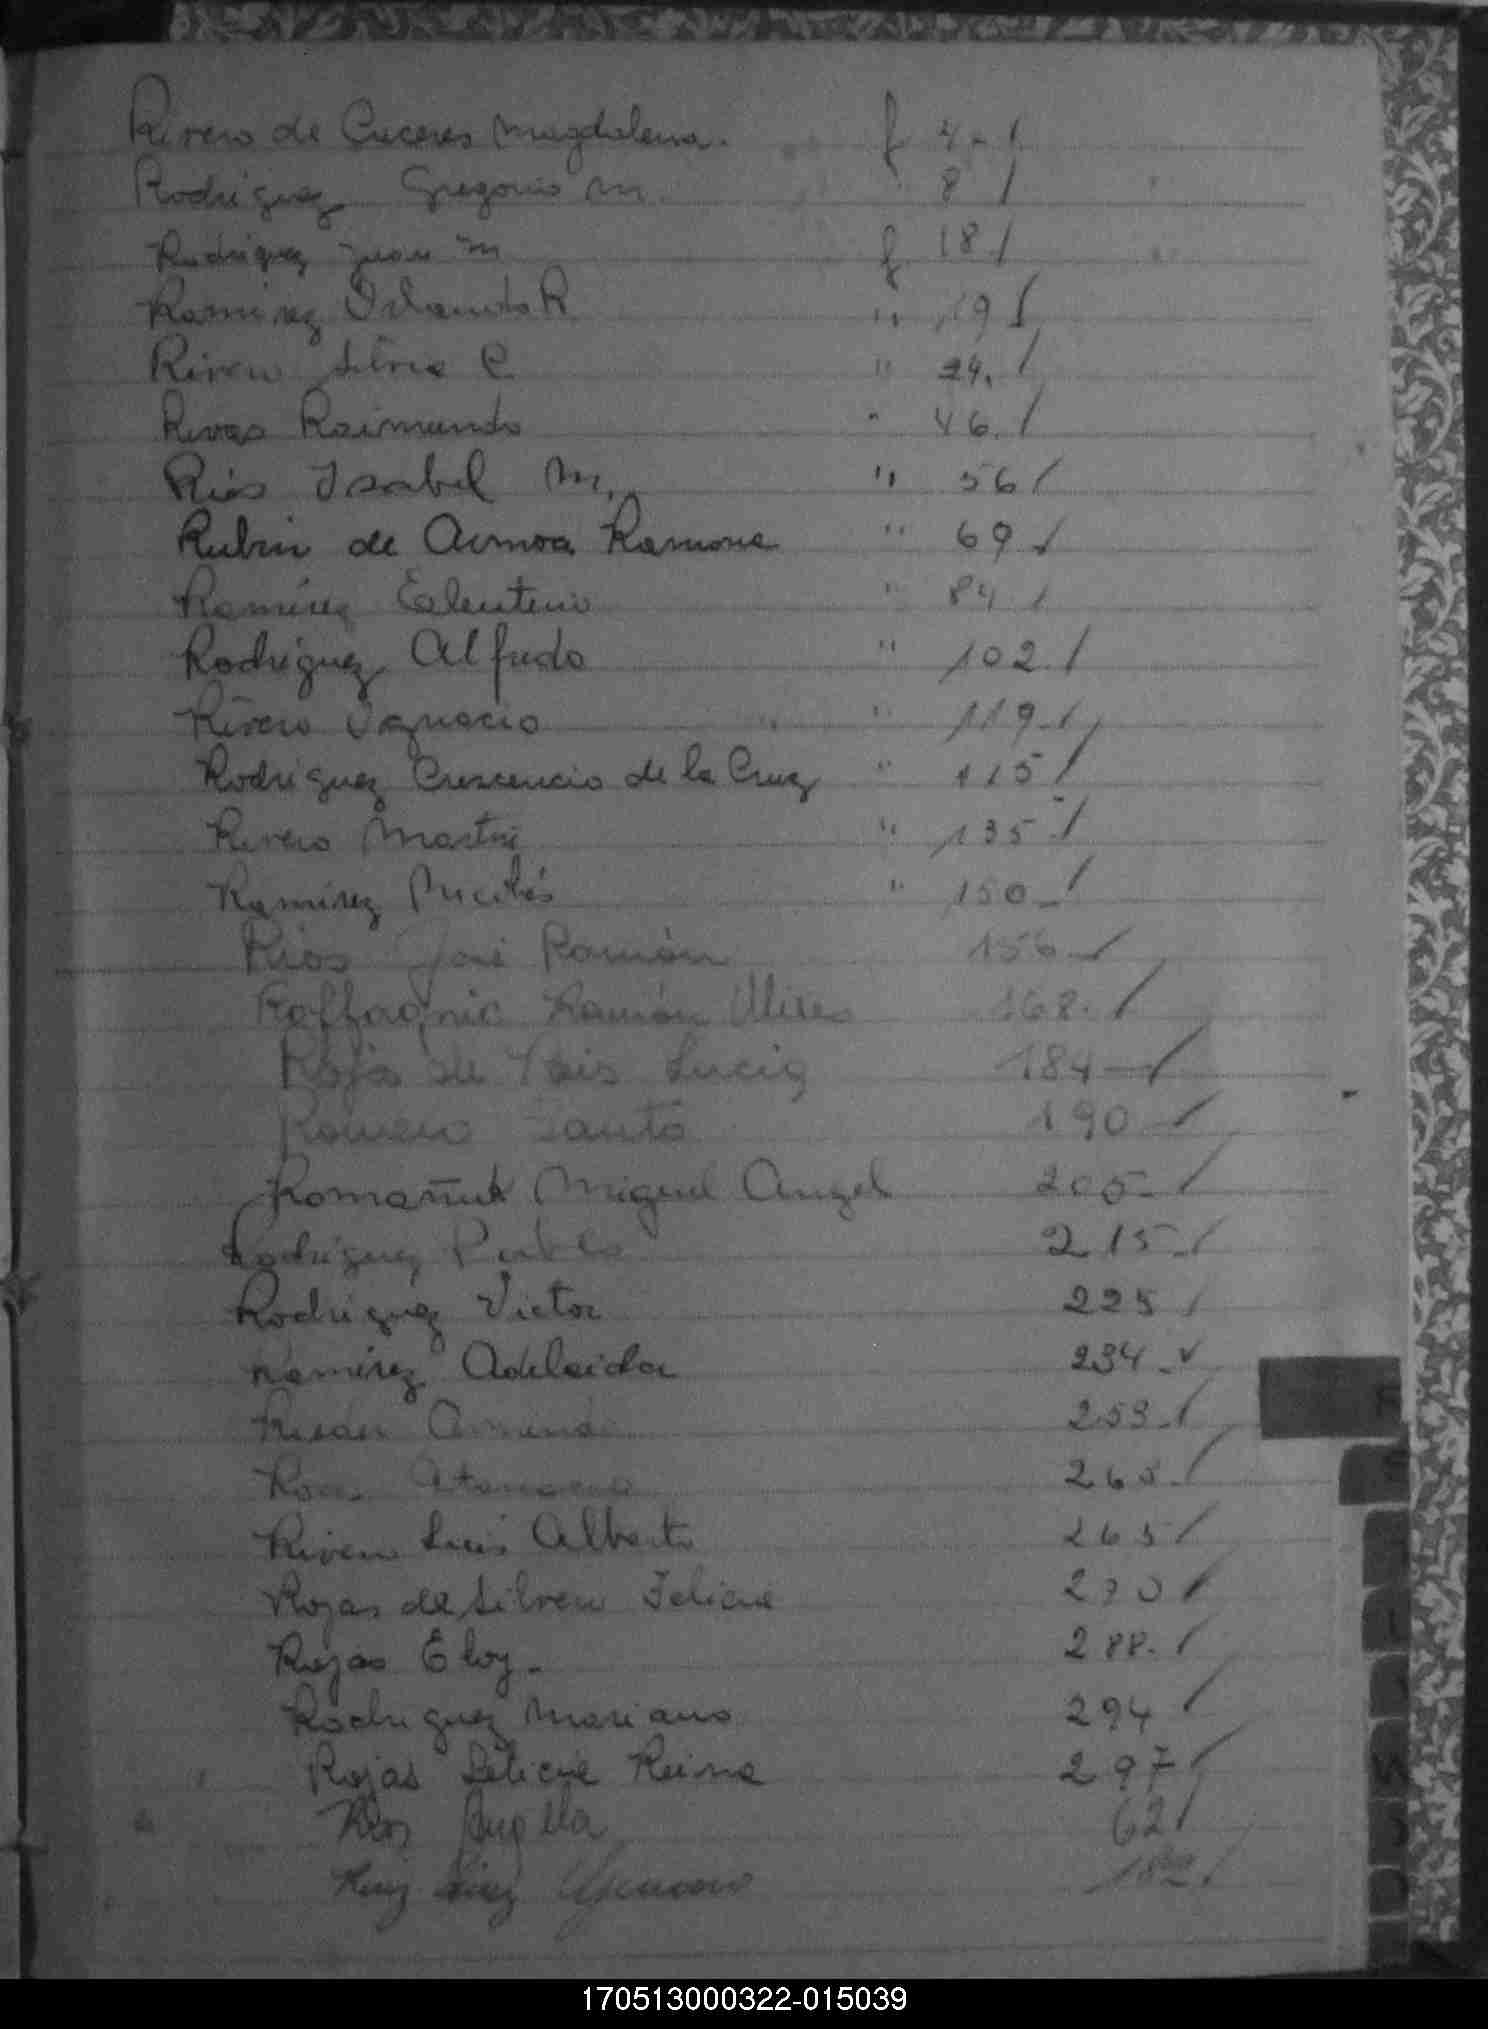 Rivero de Caceres Magdalena. f 4 - /
Rodriguez Gregorio M. " 8 /
Rodriguez Juan M f 18 /
Ramirez R " 19 /
Rivero Silvia C " 24. /
Rivas Raimundo " 46. /
Rios Isabel M. " 56 /
Rubin de Armoa Ramona " 69 /
Ramirez Eleuterio " 84 /
Rodriguez Alfredo " 102. /
Rivero Ignacio " 119 - /
Rodriguez Crescencio de la Cruz " 115 /
Rivero Martin " 135 - /
Ramirez " 150 - /
Rios José Ramón 156 - /
Ramón Ulises 168. /
Rojas de Lucia 184 - /
Romero Santo 190 - /
Romañuk Miguel Angel 205 - /
Rodriguez Pablo 215 - /
Rodriguez Victor 225 /
Ramirez Adelaida 234 - ✓
259 - /
260 - /
Rivero Luis Alberto 265 /
Rojas de Silvero Felicia 270 /
Rojas Eloy - 288. /
Rodriguez Mariano 294 /
Rojas Leticia Reina 297 /
Rios 62 /
Ruiz /
R
S
170513000322-015039